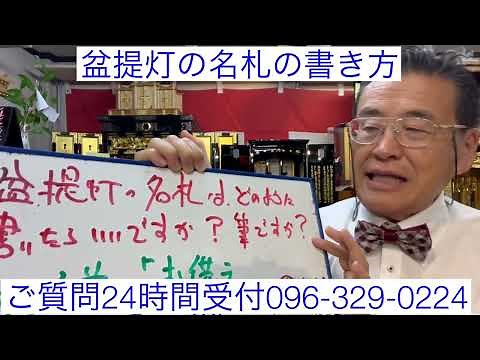 盆提灯の名札の書き方
盆提灯の名札は、どのように
書いたらいいですか？筆ですか？
「お備え
ご質問24時間受付096-329-0224